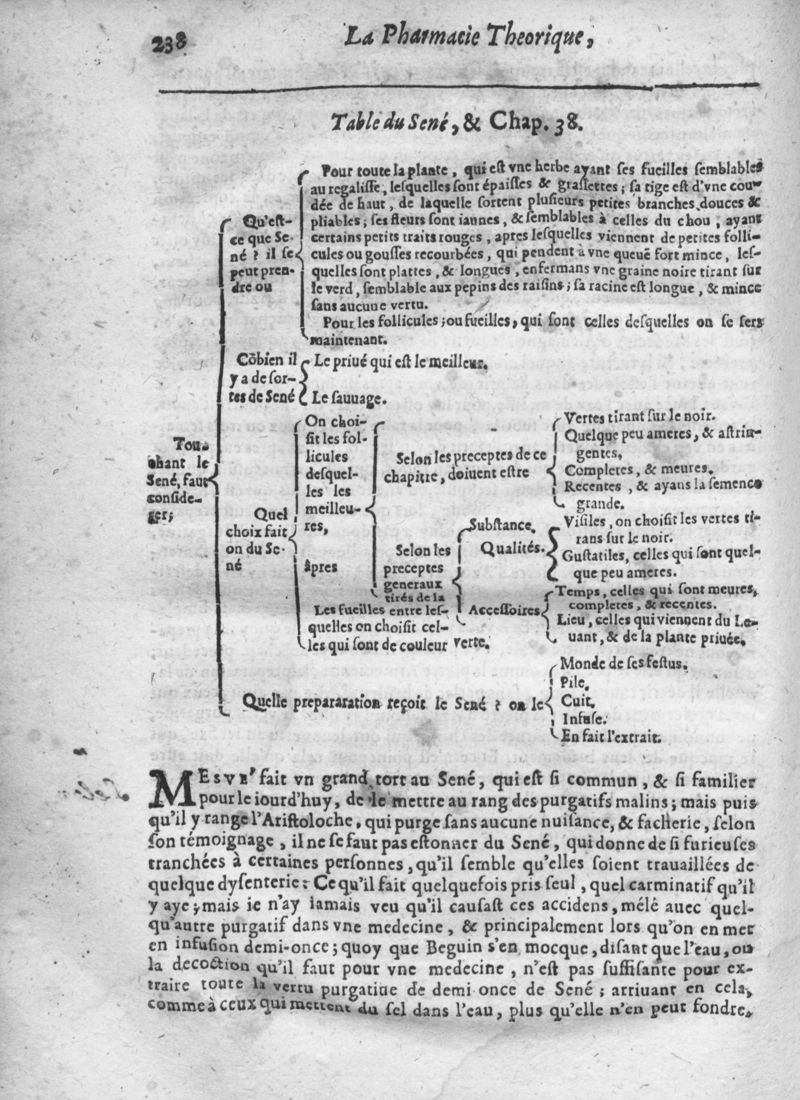 238
La Pharmacie Theorique,
Table du Sené, & Chap. 38.
Touchant le
Sené, faut
considerer;
Qu'est-
ce que Se-
né ? il se
peut pren-
dre ou
Pour toute la plante, qui est vne herbe ayant ses fueilles semblables
au regalisse, lesquelles sont épaisses & grassettes; sa tige est d'vne cou-
dée de haut, de laquelle sortent plusieurs petites branches douces &
pliables; ses fleurs sont iaunes, & semblables à celles du chou, ayant
certains petits traits rouges, apres lesquelles viennent de petites folli-
cules ou gousses recourbées, qui pendent à vne queuë fort mince, les-
quelles sont plattes, & longues, enfermans vne graine noire tirant sur
le verd, semblable aux pepins des raisins; sa racine est longue, & mince
sans aucune vertu.
Pour les follicules; ou fueilles, qui sont celles desquelles on se sert
maintenant.
Cõbien il
y a de sor-
tes de Sené
Le priué qui est le meilleur.
Le sauuage.
Quel
choix fait
on du Se-
né
On choi-
sit les fol-
licules
desquel-
les les
meilleu-
res,
âpres
Selon les preceptes de ce
chapitre, doiuent estre
Vertes tirant sur le noir.
Quelque peu ameres, & astrin-
gentes.
Completes, & meures.
Recentes, & ayans la semence
grande.
Selon les
preceptes
generaux
tirés de la
Substance.
Qualités.
Visiles, on choisit les vertes ti-
rans sur le noir.
Gustatiles, celles qui sont quel-
que peu ameres.
Accessoires
Temps, celles qui sont meures,
completes, & recentes.
Lieu, celles qui viennent du Le-
uant, & de la plante priuée.
Les fueilles entre les-
quelles on choisit cel-
les qui sont de couleur verte.
Quelle prepararation reçoit le Sené ? on le
Monde de ses festus.
Pile.
Cuit.
Infuse.
En fait l'extrait.
MESVE' fait vn grand tort au Sené, qui est si commun, & si familier
pour le iourd'huy, de le mettre au rang des purgatifs malins; mais puis
qu'il y range l'Aristoloche, qui purge sans aucune nuisance, & facherie, selon
son témoignage, il ne se faut pas estonner du Sené, qui donne de si furieuses
tranchées à certaines personnes, qu'il semble qu'elles soient trauaillées de
quelque dysenterie: Ce qu'il fait quelquefois pris seul, quel carminatif qu'il
y aye; mais ie n'ay iamais veu qu'il causast ces accidens, mêlé auec quel-
qu'autre purgatif dans vne medecine, & principalement lors qu'on en met
en infusion demi-once; quoy que Beguin s'en mocque, disant que l'eau, ou
la decoction qu'il faut pour vne medecine, n'est pas suffisante pour ex-
traire toute la vertu purgatiue de demi once de Sené; arriuant en cela,
comme à ceux qui mettent du sel dans l'eau, plus qu'elle n'en peut fondre.